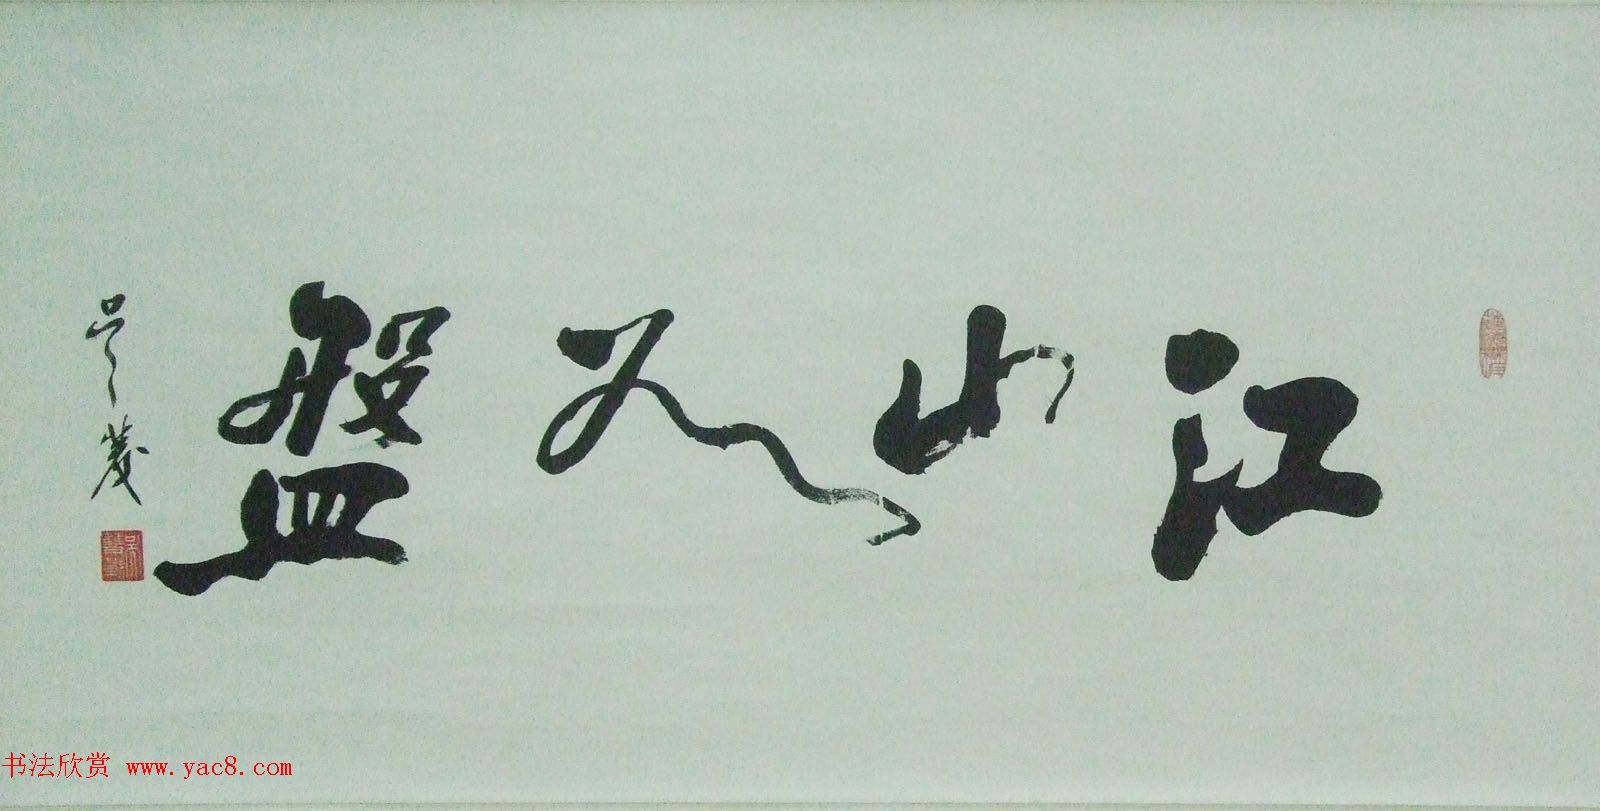 江山盤
吴茂
书法欣赏 www.yac8.com